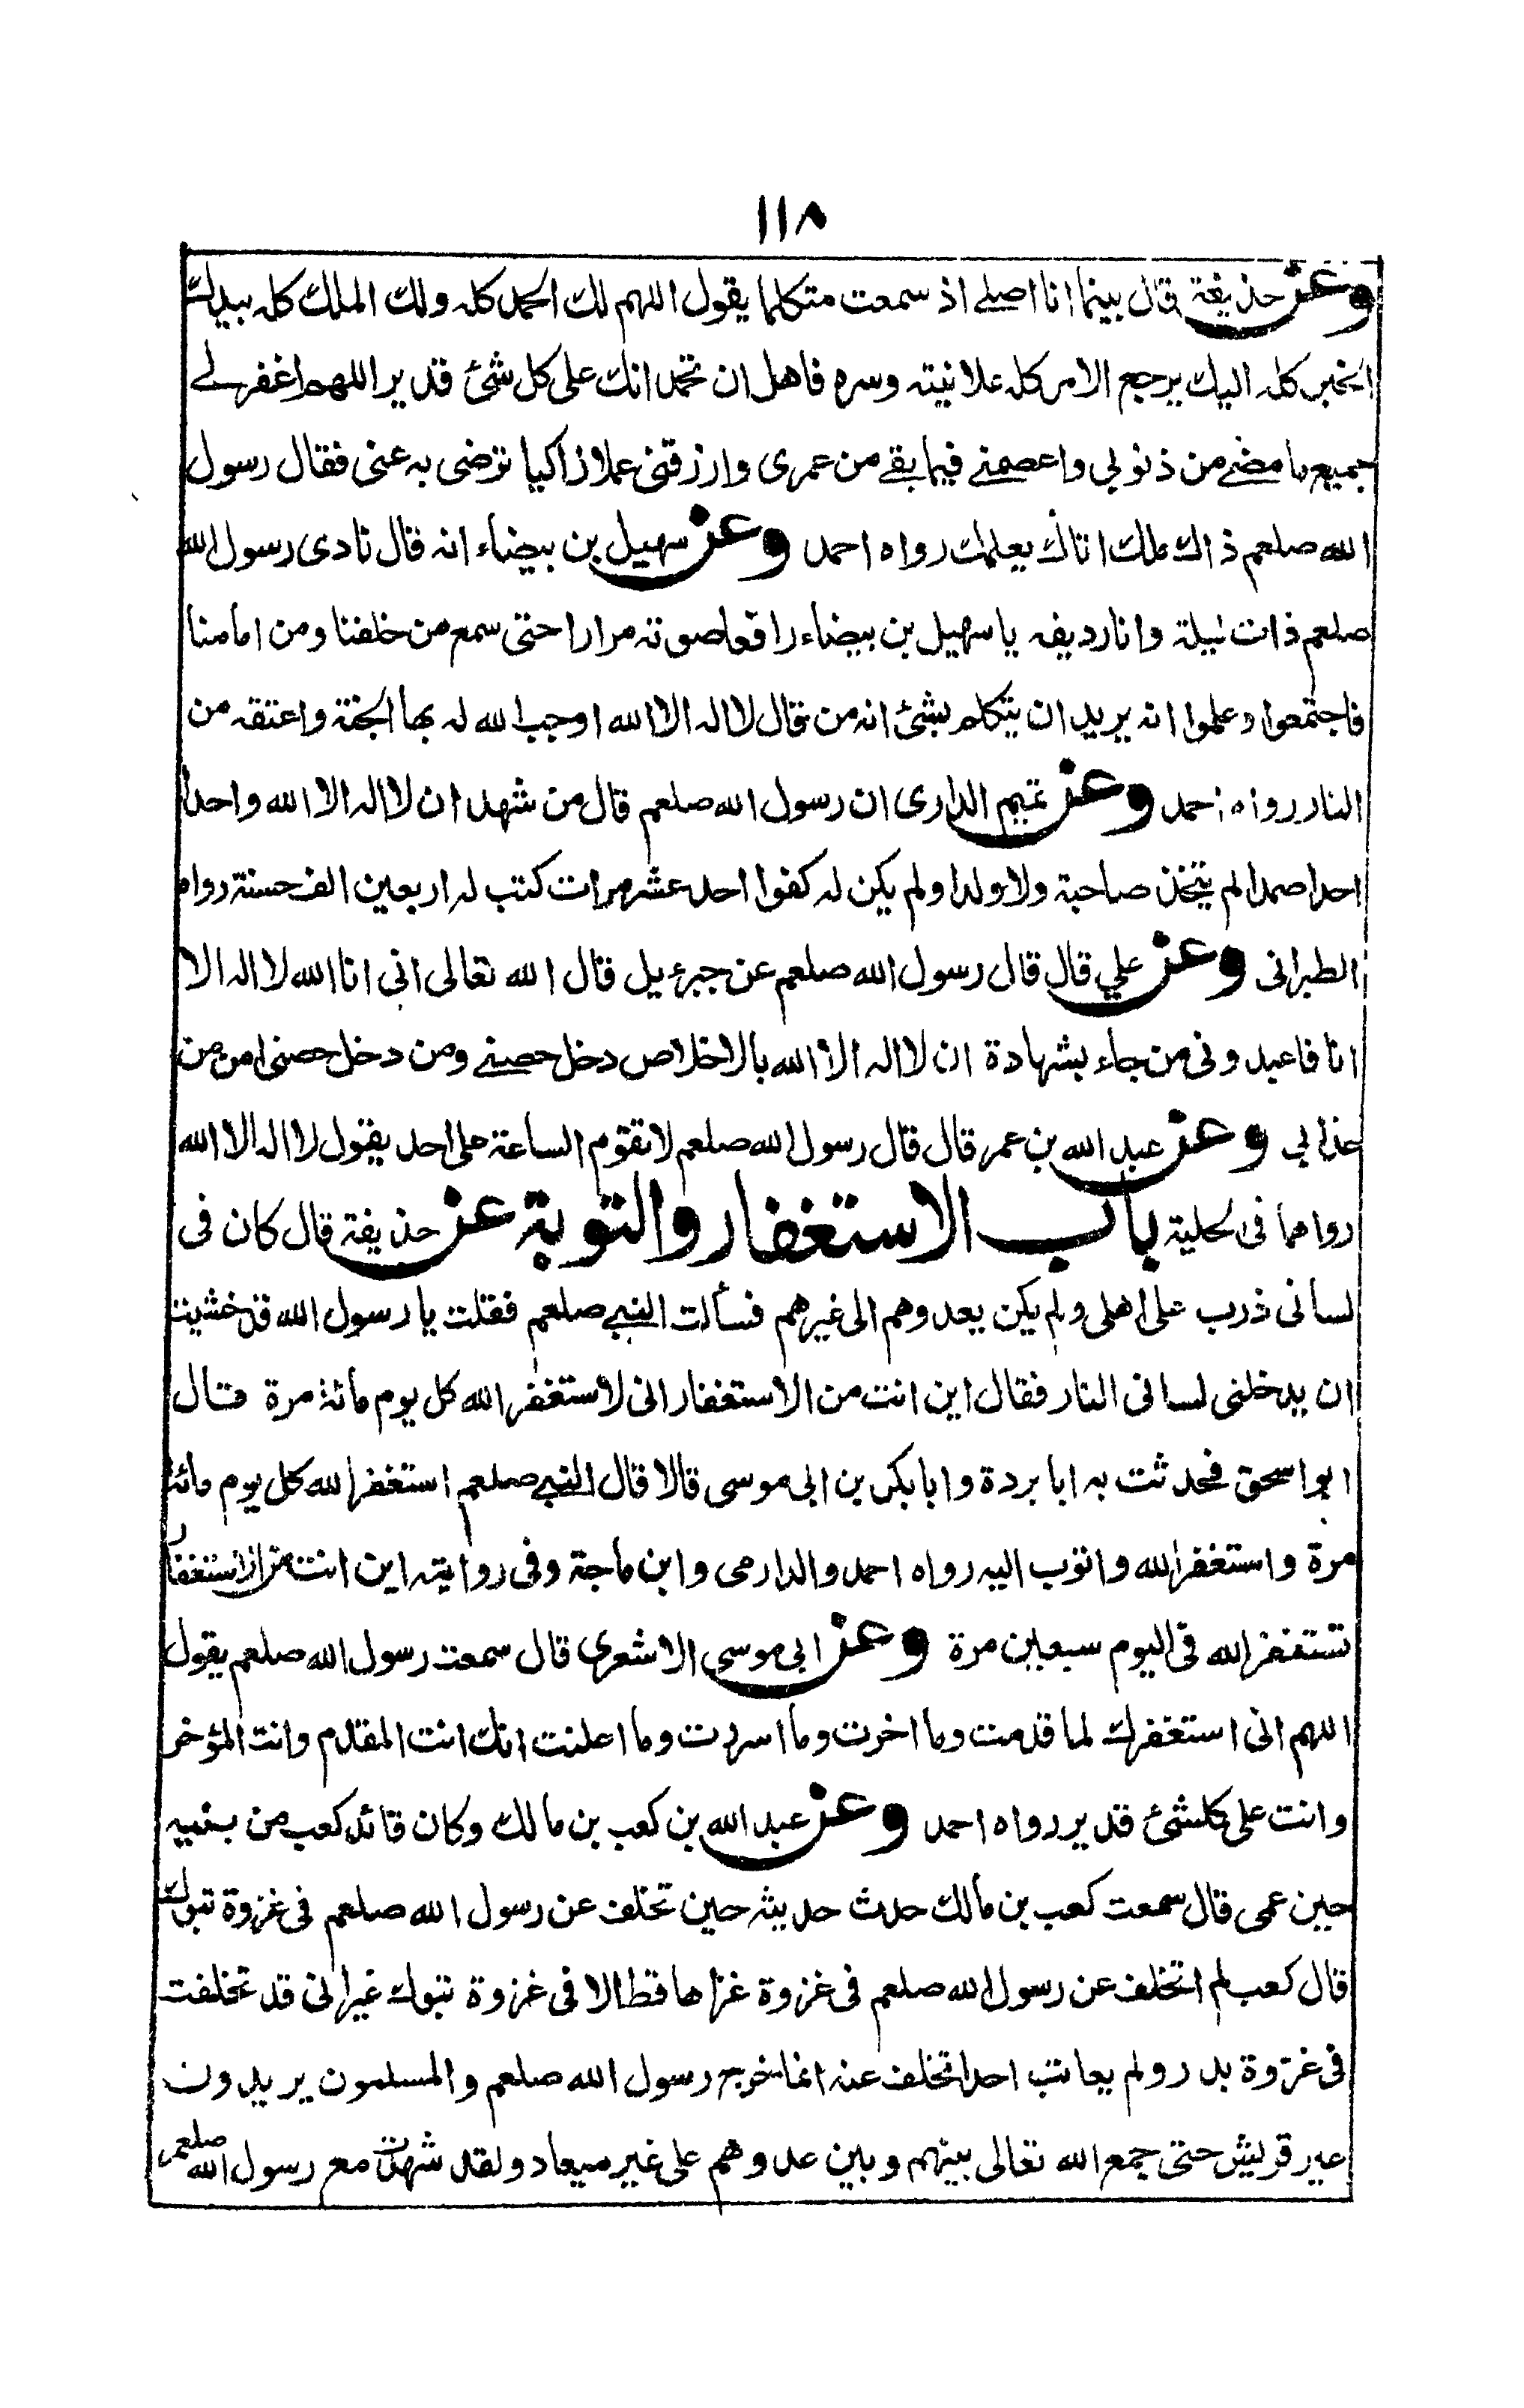 ١١٨
وعن حذيفة قال بينما انا اصلے اذ سمعت متكلما يقول اللهم لك الحمد كله ولك الملك كله بيدك
الخير كله اليك يرجع الامر كله علانيته وسره فاهل ان تحمد انك على كل شئ قدير اللهم اغفر لے
جميع ما مضے من ذنوبي واعصمنے فيما بقے من عمرى وارزقنى عملا زاكيا ترضى به عنى فقال رسول
الله صلعم ذاك ملك اتاك يعلمك رواه احمد وعن سهيل بن بيضاء انه قال نادى رسول الله
صلعم ذات ليلة وانا رديفه يا سهيل بن بيضاء رافعا صوته مرارا حتى سمع من خلفنا ومن امامنا
فاجتمعوا وعلموا انه يريد ان يتكلم بشئ انه من قال لا اله الا الله اوجب الله له بها الجنة واعتقه من
النار رواه احمد وعن تميم الدارى ان رسول الله صلعم قال من شهد ان لا اله الا الله واحدا
احدا صمدا لم يتخذ صاحبة ولا ولدا ولم يكن له كفوا احد عشر مرات كتب له اربعين الف حسنة رواه
الطبرانى وعن علي قال قال رسول الله صلعم عن جبرئيل قال الله تعالى انى انا الله لا اله الا
انا فاعبدونى من جاء بشهادة ان لا اله الا الله بالاخلاص دخل حصنے ومن دخل حصنى امن من
عذابي وعن عبد الله بن عمر قال قال رسول الله صلعم لا تقوم الساعة على احد يقول لا اله الا الله
رواهما فى لحلية باب الاستغفار والتوبة عن حذيفة قال كان فى
لسانى ذرب على اهلى ولم يكن يعدوهم الى غيرهم فسألت النبے صلعم فقلت يا رسول الله قد خشيت
ان يدخلنى لسانى النار فقال اين انت من الاستغفار انى لاستغفر الله كل يوم مائة مرة قال
ابو اسحق فحدثت به ابا بردة وابا بكر بن ابى موسى قالا قال النبے صلعم استغفر الله كل يوم مائة
مرة واستغفر الله واتوب اليه رواه احمد والدارمى وابن ماجة وفى رواية اين انت من الاستغفار
تستغفر الله فى اليوم سبعين مرة وعن ابى موسى الاشعرى قال سمعت رسول الله صلعم يقول
اللهم انى استغفرك لما قدمت وما اخرت وما اسررت وما اعلنت انك انت المقدم وانت المؤخر
وانت على كلشئ قدير رواه احمد وعن عبد الله بن كعب بن مالك وكان قائد كعب من بنيه
حين عمى قال سمعت كعب بن مالك حدث حديثه حين تخلف عن رسول الله صلعم فى غزوة تبوك
قال كعب لم اتخلف عن رسول الله صلعم فى غزوة غزاها قط الا فى غزوة تبوك غير انى قد تخلفت
فى غزوة بدر ولم يعاتب احدا تخلف عنه انما خرج رسول الله صلعم والمسلمون يريدون
عير قريش حتى جمع الله تعالى بينهم وبين عدوهم على غير ميعاد ولقد شهدت مع رسول الله صلعم